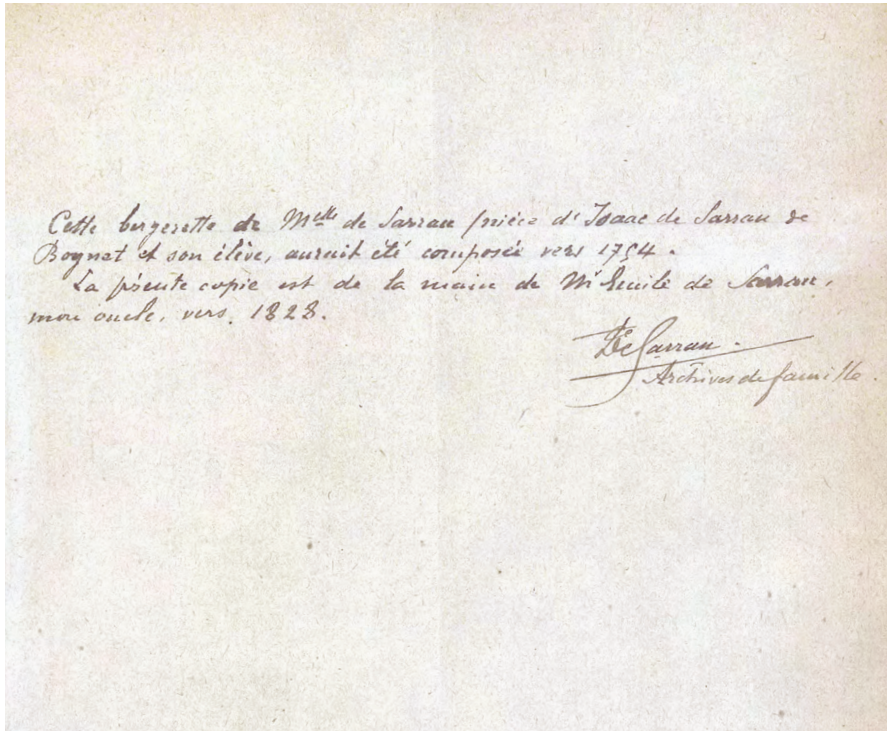 Cette bergerette de Melle de Sarrau (nièce d'Isaac de Sarrau de
Boynet et son élève, aurait été composée vers 1754.
La présente copie est de la main de Mr Emile de Sarrau,
mon oncle, vers 1828.
De Sarrau.
Archives de famille.